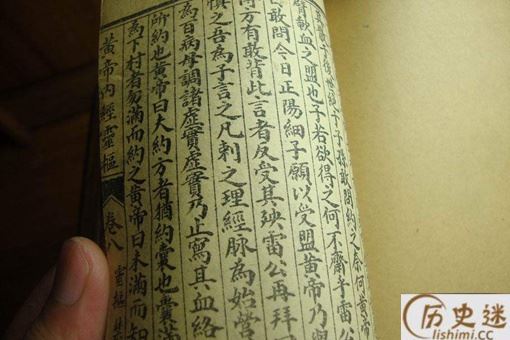 散於後世絕於子孫敢問約之奈何黄帝
臂歃血之盟也子若欲得之何不齋乎雷
敢問今日正陽細子願以受盟黄帝乃
方有敢背此言者反受其殃雷公再拜
之吾為子言之凡刺之理經脈為始營
為百病母調諸虛實虛實乃止寫其血絡
所約也黄帝曰大約方者猶約囊也囊滿
為下材者勿滿而約之黄帝曰未滿而知
黄帝內經靈樞 卷八 靈樞
历史迷
lishimi.cc